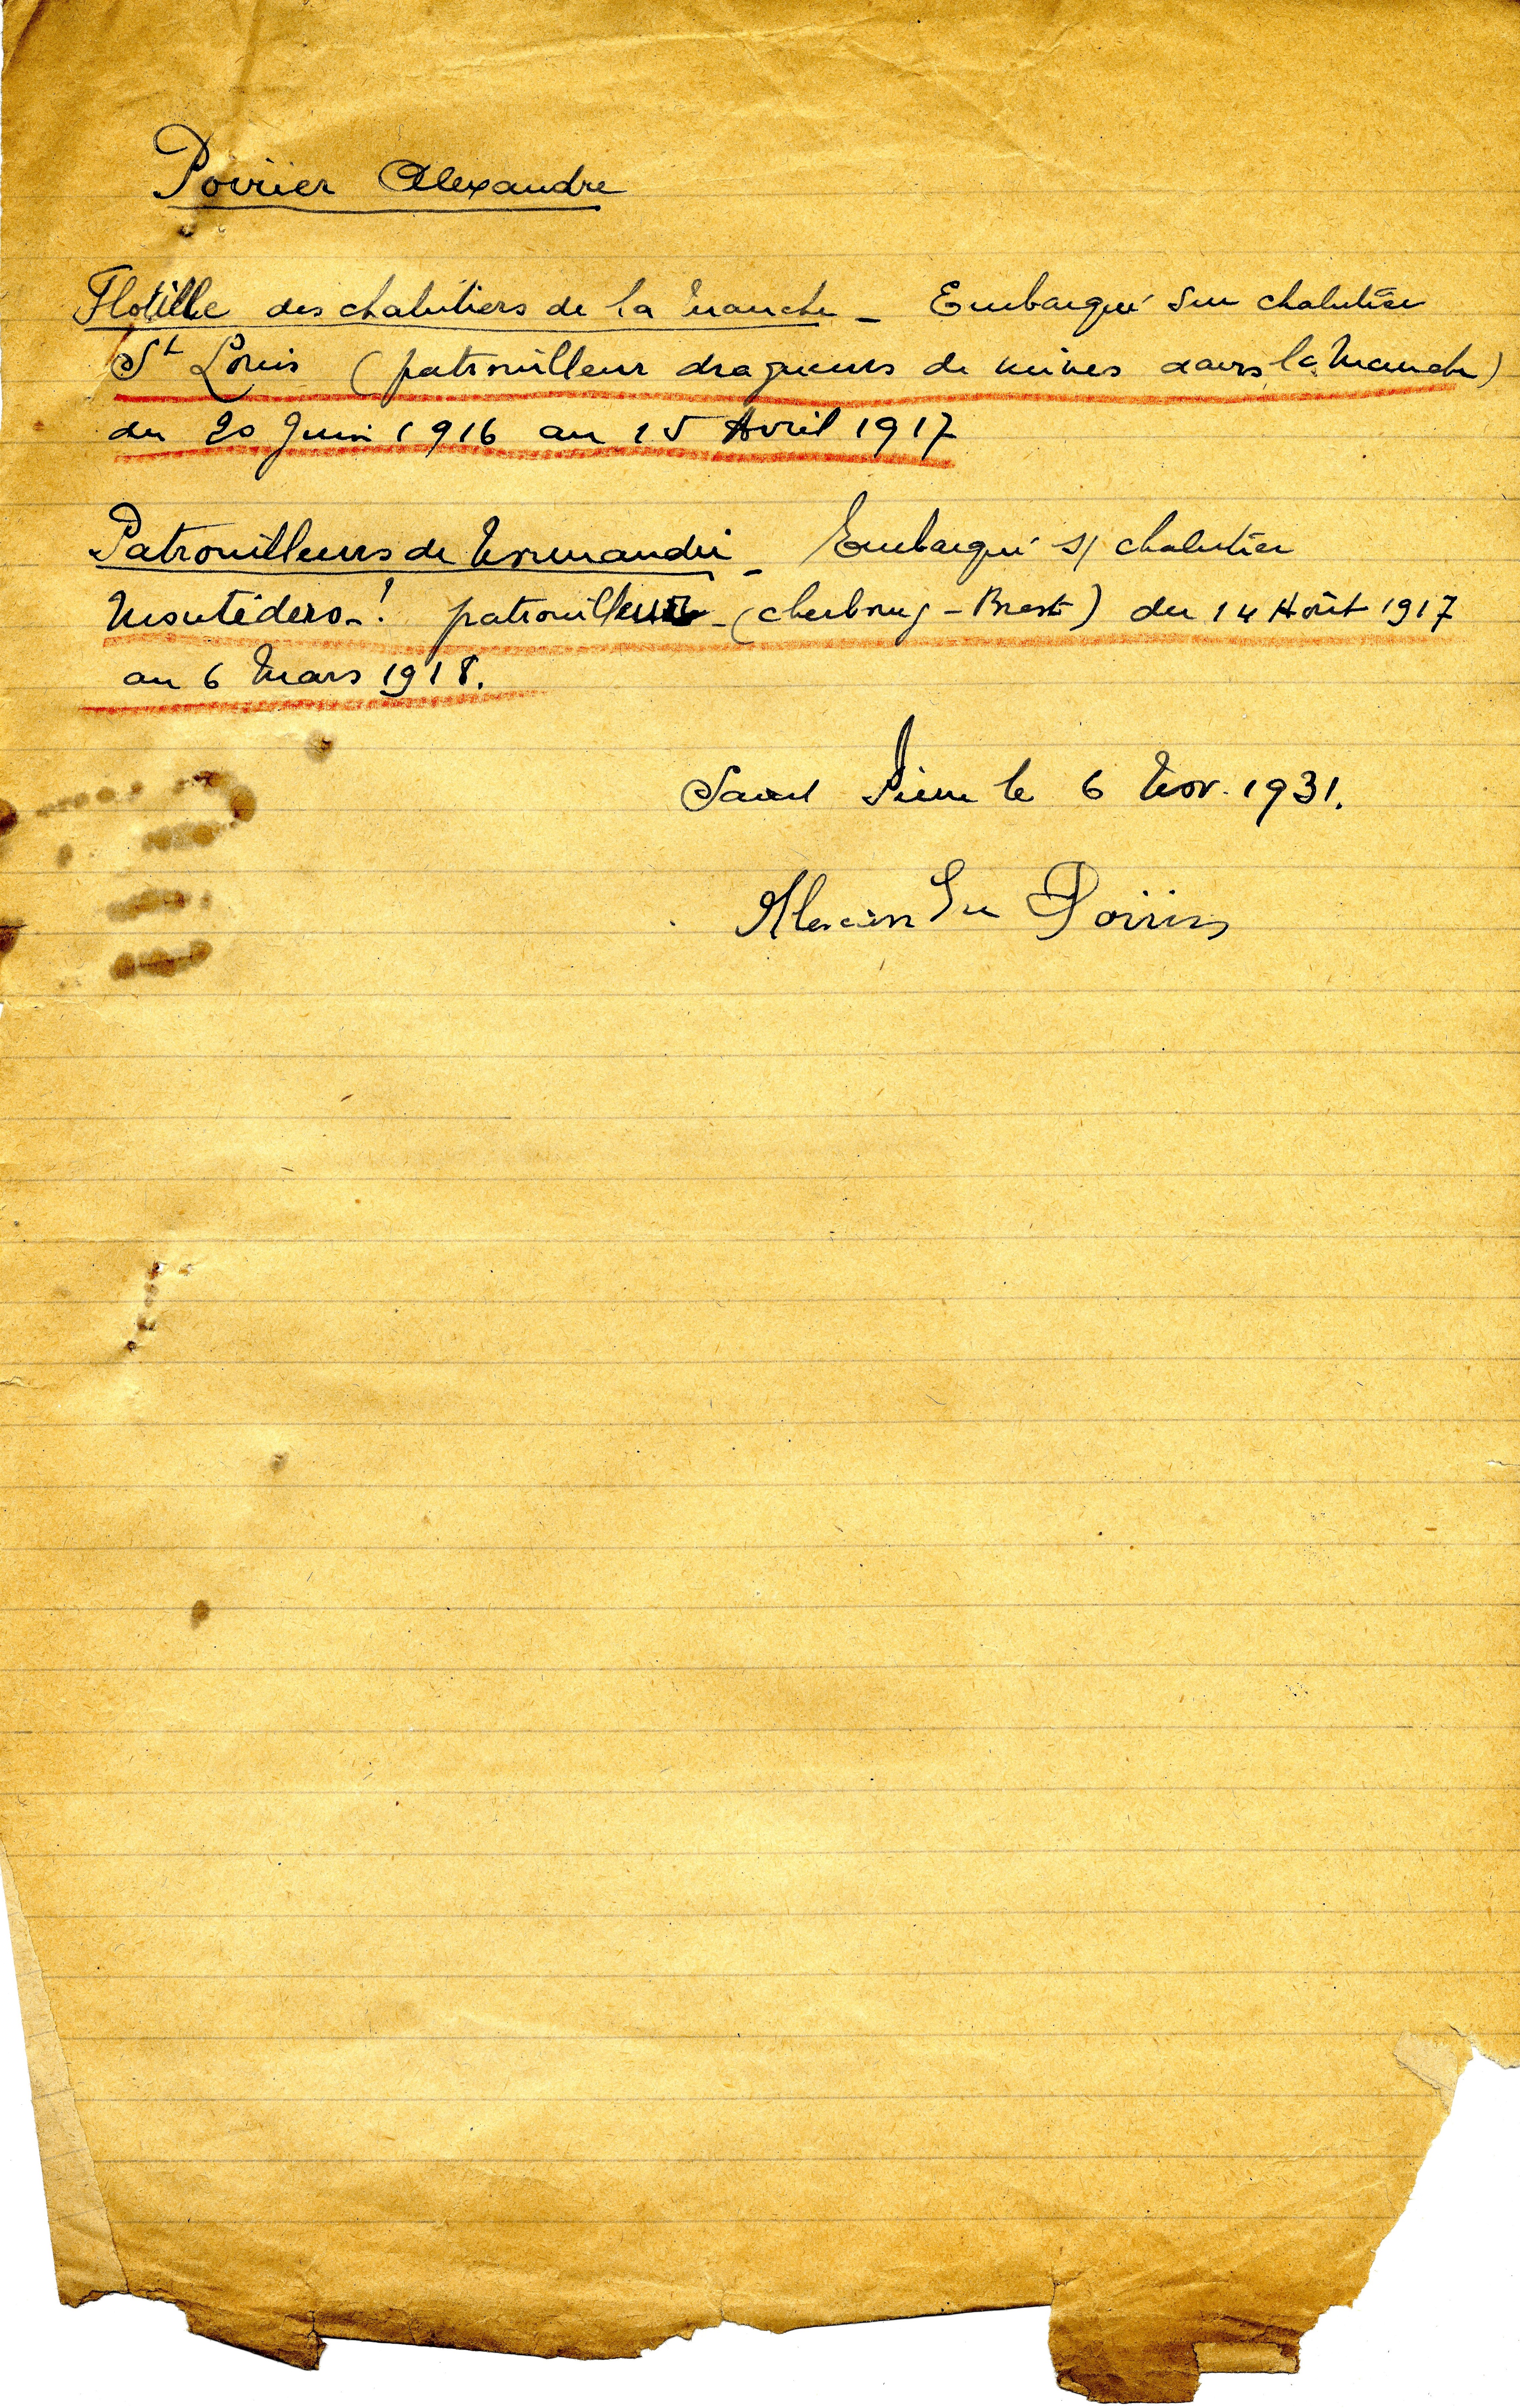 Poirier Alexandre
Flotille des chalutiers de la Manche – Embarqué sur chalutier
St Louis (patrouilleur dragueurs de mines dans la Manche)
du 20 Juin 1916 au 15 Avril 1917
Patrouilleurs de Normandie – Embarqué s/ chalutier
Montédero –! patrouilleur – (cherbourg – Brest) du 14 Août 1917
au 6 Mars 1918.
Saint Pierre le 6 Nov. 1931.
Alexandre Poirier